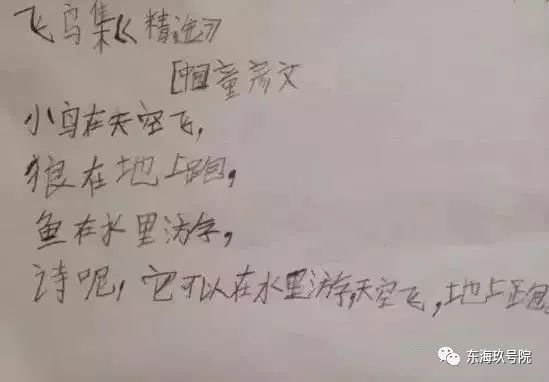 飞鸟集《精选》
[中国]童彦文
小鸟在天空飞,
狼在地上跑,
鱼在水里游,
诗呢,它可以在水里游,天空飞,地上跑。
东海玖号院